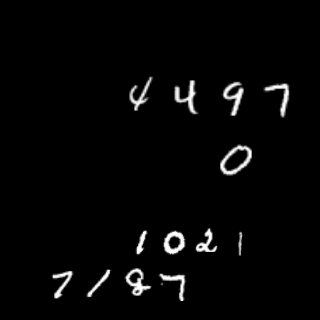 4497
0
1021
7187